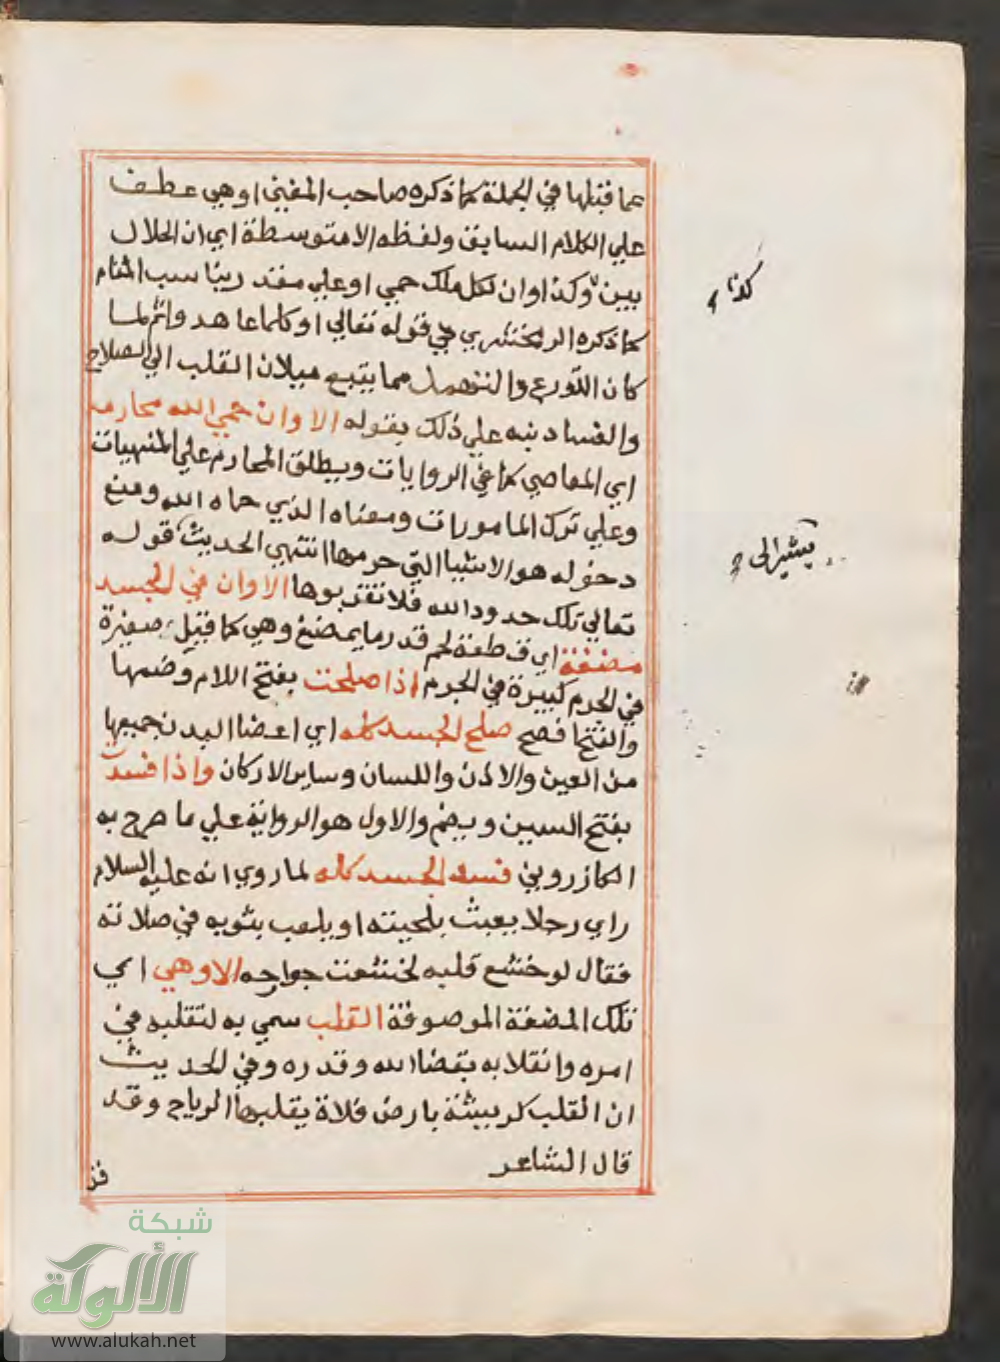 عما قبلها في الجملة كما ذكره صاحب المغني او هي عطف
علي الكلام السابق ولفظه الا متوسطة اي ان الحلال
بين وكذا وان لكل ملك حمي او علي مقدر يناسب المقام
كما ذكره الزمخشري في قوله تعالي او كلما عاهدوا ثم لما
كان التورع والتهمل مما يتبع ميلان القلب الي الصلاح
والفساد نبه علي ذلك بقوله الا وان حمي الله محارمه
اي المعاصي كما في الروايات ويطلق المحارم علي المنهيات
وعلي ترك المامورات ومعناه الذي حماه الله ومنع
دخوله هو الاشيا التي حرمها انتهي الحديث قوله
تعالي تلك حدود الله فلا تقربوها الا وان في الجسد
مضغة اي قطعة لحم قدر ما يمضغ وهي كما قيل صغيرة
في الجرم كبيرة في الجرم اذا صلحت بفتح اللام وضمها
والفتح افصح صلح الجسد كله اي اعضا البدن جميعها
من العين والاذن واللسان وساير الاركان واذا فسدت
بفتح السين ويضم والاول هو الرواية علي ما صرح به
الكازروني فسد الجسد كله لما روي انه عليه السلام
راي رجلا يعبث بلحيته او يلعب بثوبه في صلاته
فقال لو خشع قلبه لخشعت جوارحه الا وهي اي
تلك المضغة الموصوفة القلب سمي به لتقلبه في
امره وانقلابه بقضا الله وقدره وفي الحديث
ان القلب كريشة بارض فلاة يقلبها الرياح وقد
قال الشاعر
قد
يشير الى
شبكة
الألوكة
www.alukah.net